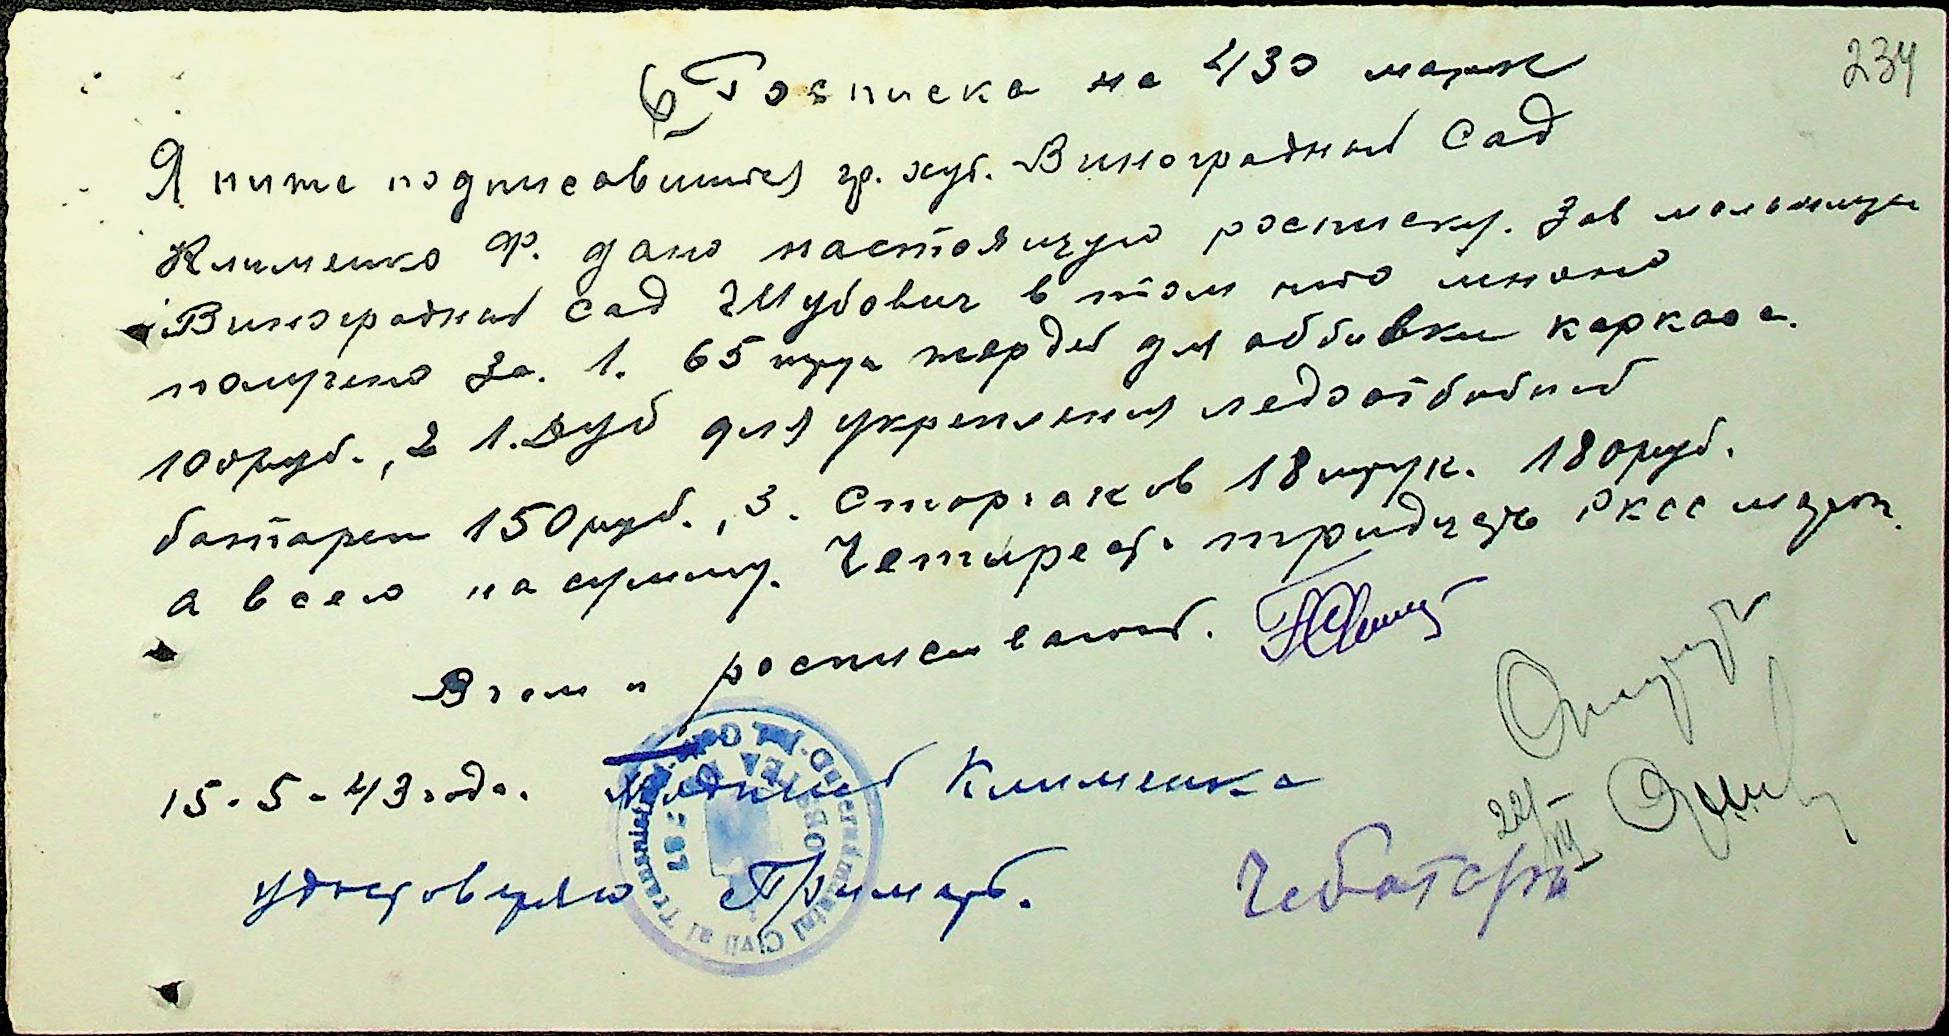 234
6 Росписка на 430 марк
Я ниже подписавшийся гр. хут. Виноградный Сад
Клименко Ф. дано настоящую росписку. Зав мельницы
Виноградный Сад Шубович в том что мною
получено за. 1. 65 штук жердей для оббивки каркаса.
100 руб., 2 1. Дуб для укрепления ледоотбойной
батареи 150 руб., 3. Сторчаков 18 штук. 180 руб.
а всего на сумму. Четыреста тридцать Ркес марок.
В чем и росписываюсь.
15-5-43 года. Клименка
удостоверяю Примарь.
Чеботарь